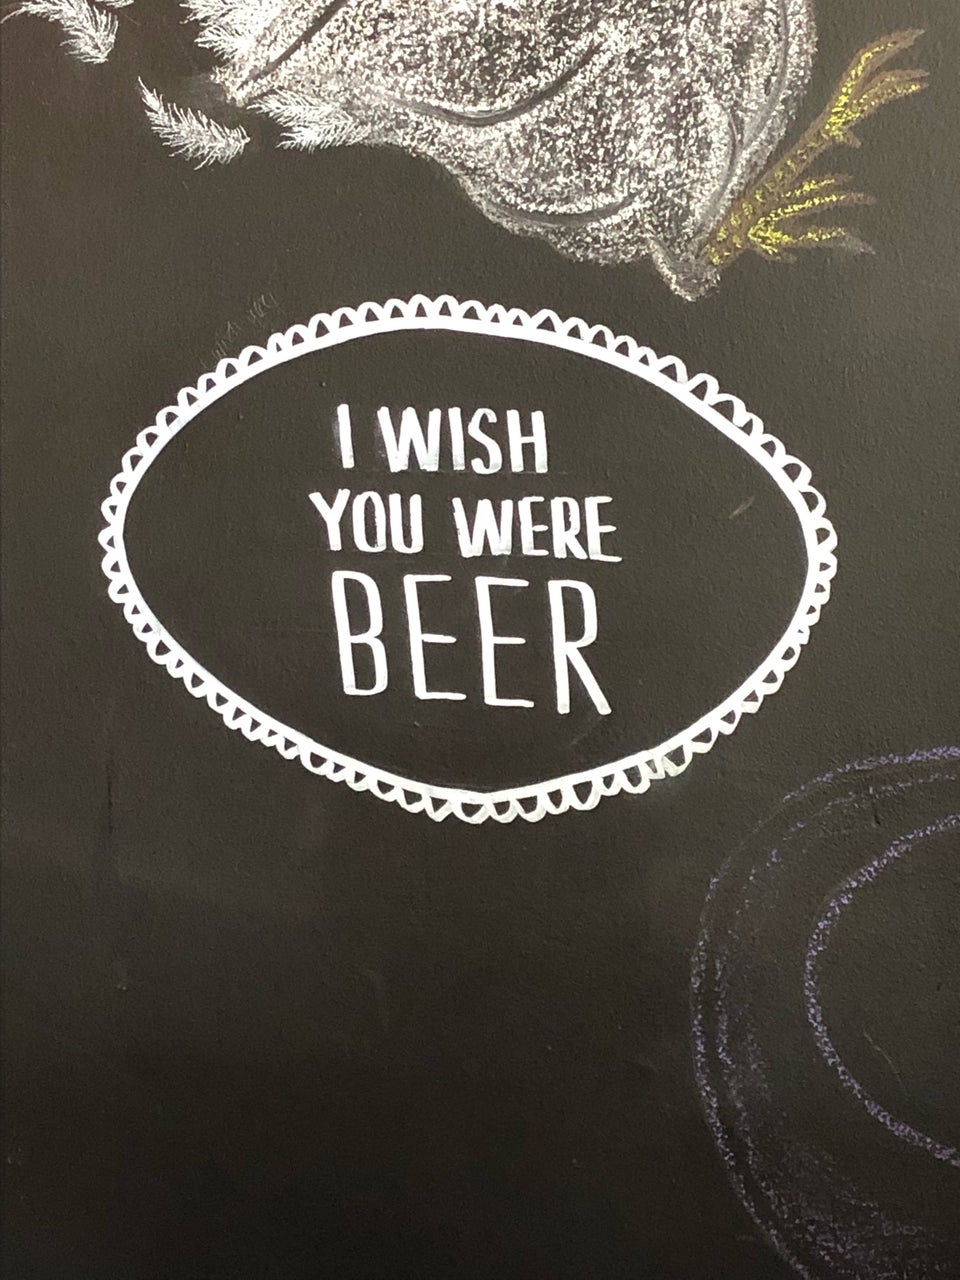 I WISH
YOU WERE
BEER